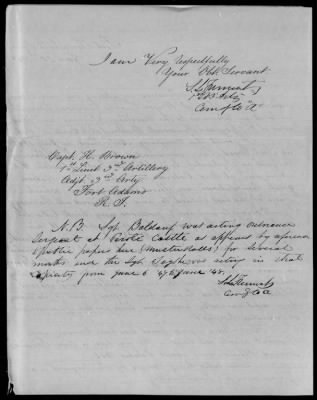 I am Very respectfully
Your Obt. Servant
Comg Co "A"
Capt. H. Brown
1st Lieut 3rd Artillery
Adjt. 3rd Arty
Fort Adams
R. I.
N.B. Sgt Baldauf was acting ordnance
Sergeant at Perote Castle as appears by
papers here (Muster Rolls) for several
months and the Sgt was acting in that
capacity from June 6 '47 to June '48.
Comg Co A